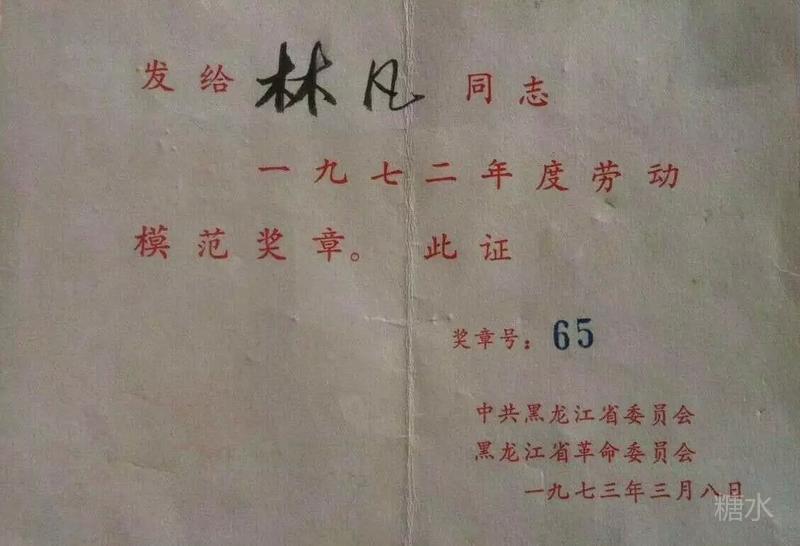 发给林凡同志
一九七二年度劳动
模范奖章。此证
奖章号：65
中共黑龙江省委员会
黑龙江省革命委员会
一九七三年三月八日
糖水